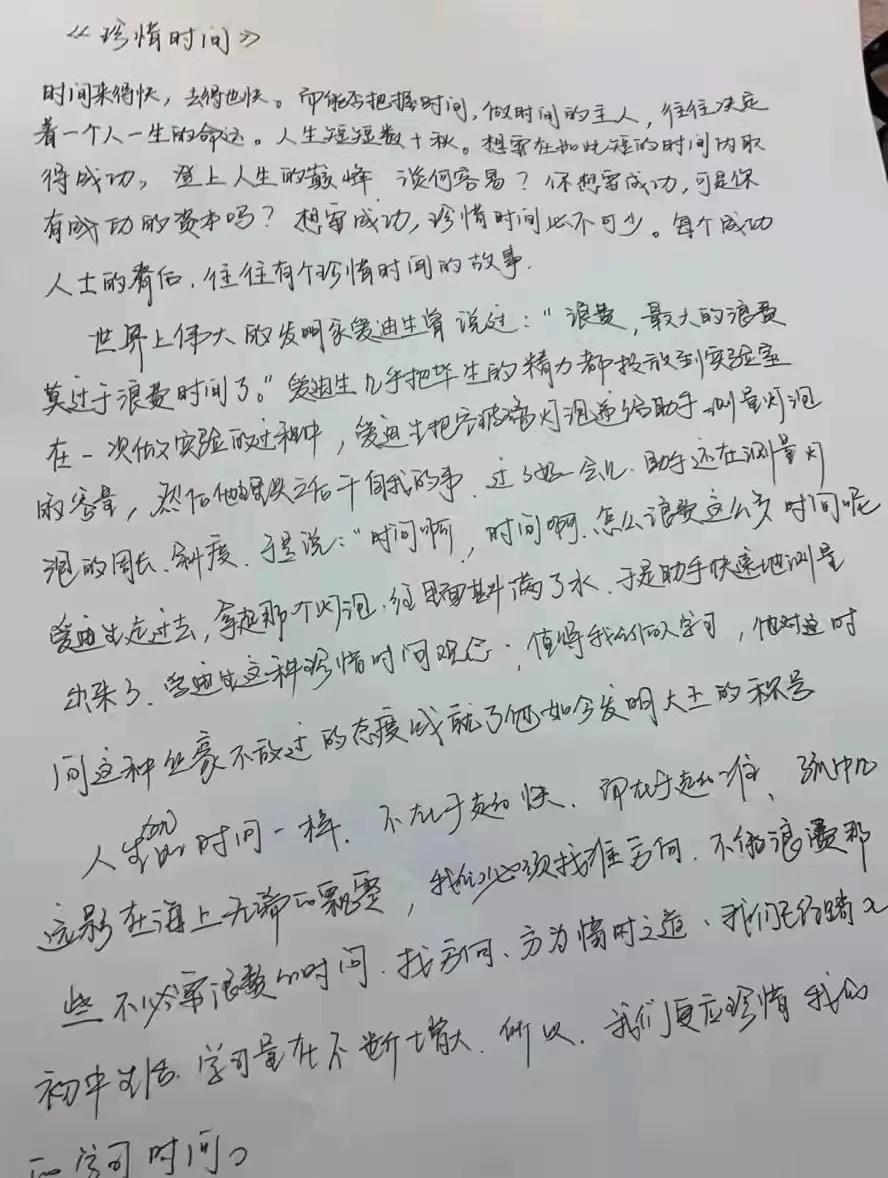 《珍惜时间》
时间来得快，去得也快。而能否把握时间，做时间的主人，往往决定
着一个人一生的命运。人生短短数十秋。想要在如此短的时间内取
得成功，登上人生的巅峰，谈何容易？你想要成功，可是你
有成功的资本吗？想要成功，珍惜时间必不可少。每个成功
人士的背后，往往有个珍惜时间的故事.
世界上伟大的发明家爱迪生曾说过："浪费，最大的浪费
莫过于浪费时间了。"爱迪生几乎把毕生的精力都投放到实验室
在一次做实验的过程中，爱迪生把空玻璃灯泡递给助手测量灯泡
的容量，然后他转头之后干自我的事.过了好一会儿.助手还在测量灯
泡的周长、斜度.于是说："时间啊，时间啊.怎么浪费这么多时间呢
爱迪生走过去，拿起那个灯泡.往里面斟满了水.于是助手快速地测量
出来了.爱迪生这种珍惜时间观念；值得我们的学习，他对这时
间这种丝毫不放过的态度成就了他如今发明大王的称号
人生如时间一样.不在于走的快.而在于走的准、孤帆
远影在海上无需飘零，我们必须找准方向.不做浪费那
些不必要浪费的时间.找方向、方为惜时之道、我们已经踏入
初中生活.学习量在不断增大.所以.我们更应珍惜我们
的学习时间。